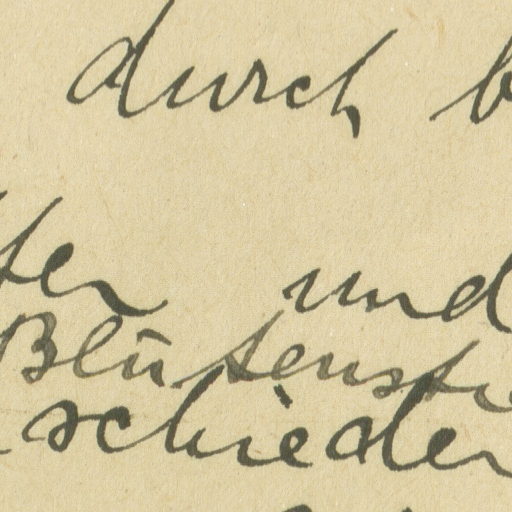 durch b
ter und
Blütensti
schieden